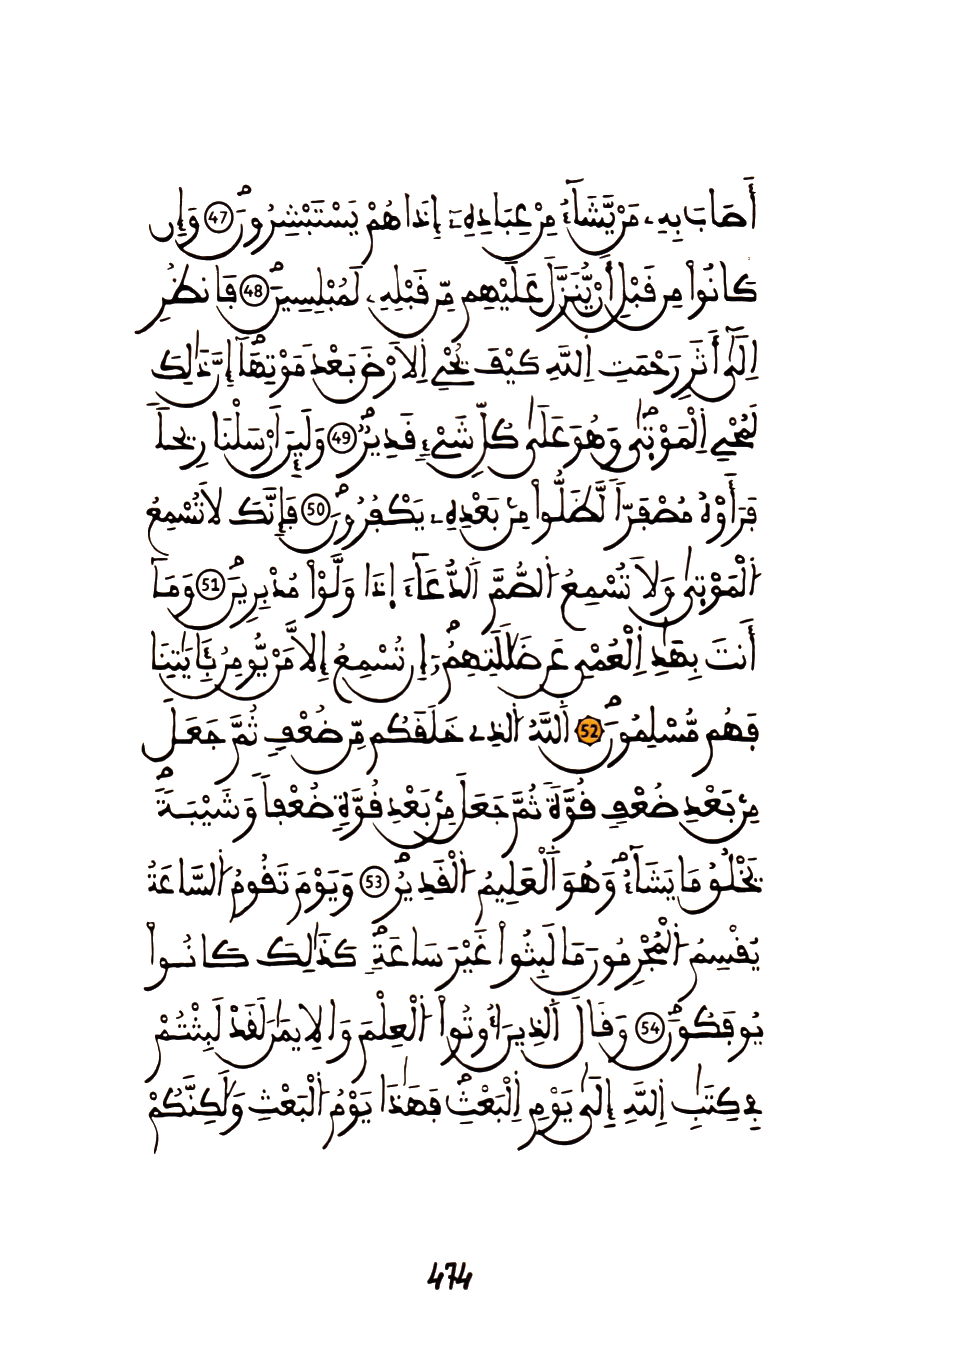 أَصَابَ بِهِۦ مَنْ يَّشَآءُ مِنْ عِبَادِهِۦٓ إِذَا هُمْ يَسْتَبْشِرُونَۖ 47 وَإِن
كَانُواْ مِن قَبْلِ أَنْ يُّنَزَّلَ عَلَيْهِم مِّن قَبْلِهِۦ لَمُبْلِسِينَۖ 48 فَانظُرِ
اِلَيٰٓ أَثَرِ رَحْمَتِ اِ۬للَّهِ كَيْفَ يُحْيِ اِ۬لَارْضَ بَعْدَ مَوْتِهَآۖ إِنَّ ذَٰلِكَ
لَمُحْيِ اِ۬لْمَوْتۭيٰۖ وَهُوَ عَلَيٰ كُلِّ شَےْءٖ قَدِيرٞۖ 49 وَلَئِنَ اَرْسَلْنَا رِيحاٗ
فَرَأَوْهُ مُصْفَرّاٗ لَّظَلُّواْ مِنۢ بَعْدِهِۦ يَكْفُرُونَۖ 50 فَإِنَّكَ لَا تُسْمِعُ
اُ۬لْمَوْتۭيٰ وَلَا تُسْمِعُ اُ۬لصُّمَّ اَ۬لدُّعَآءَ ا۪ذَا وَلَّوْاْ مُدْبِرِينَۖ 51 وَمَآ
أَنتَ بِهَٰدِ اِ۬لْعُمْيِ عَن ضَلَٰلَتِهِمُۥٓۖ إِن تُسْمِعُ إِلَّا مَنْ يُّومِنُ بِـَٔايَٰتِنَا
فَهُم مُّسْلِمُونَۖ 52 اَ۬للَّهُ اُ۬لذِے خَلَقَكُم مِّن ضُعْفٖ ثُمَّ جَعَلَ
مِنۢ بَعْدِ ضُعْفٖ قُوَّةٗ ثُمَّ جَعَلَ مِنۢ بَعْدِ قُوَّةٖ ضُعْفاٗ وَشَيْبَةٗۖ
يَخْلُقُ مَا يَشَآءُۖ وَهُوَ اَ۬لْعَلِيمُ اُ۬لْقَدِيرُۖ 53 وَيَوْمَ تَقُومُ اُ۬لسَّاعَةُ
يُقْسِمُ اُ۬لْمُجْرِمُونَ مَا لَبِثُواْ غَيْرَ سَاعَةٖۖ كَذَٰلِكَ كَانُواْ
يُوفَكُونَۖ 54 وَقَالَ اَ۬لذِينَ أُوتُواْ اُ۬لْعِلْمَ وَالِايمَٰنَ لَقَدْ لَبِثْتُمْ
فِے كِتَٰبِ اِ۬للَّهِ إِلَيٰ يَوْمِ اِ۬لْبَعْثِۖ فَهَٰذَا يَوْمُ اُ۬لْبَعْثِ وَلَٰكِنَّكُمْ
474